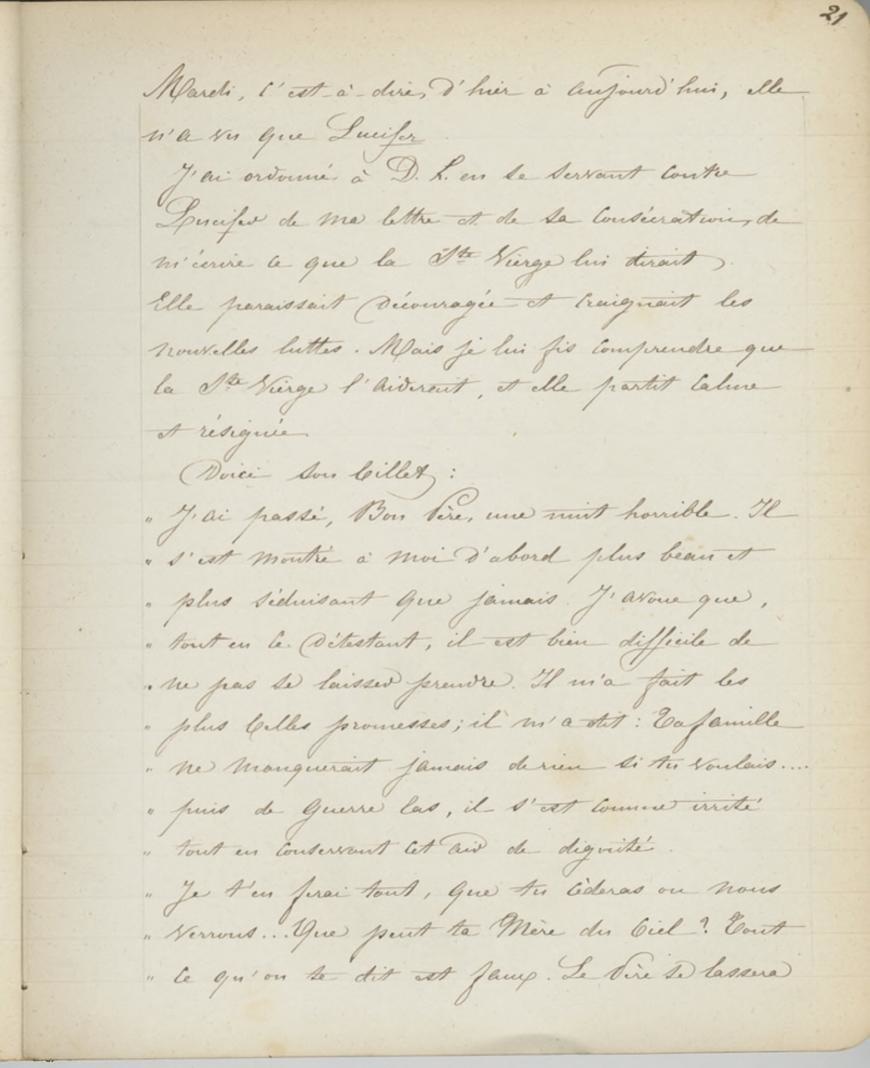 21
Mardi, c'est-à-dire, d'hier à aujourd'hui, elle
n'a vu que Lucifer
J'ai ordonné à D. L. en se servant contre
Lucifer de ma lettre et de sa consécration, de
m'écrire ce que la Ste Vierge lui dirait.
Elle paraissait découragée et craignait les
nouvelles luttes. Mais je lui fis comprendre que
la Ste Vierge l'aiderait, et elle partit calme
et résignée
Voici son billet :
" J'ai passé, Bon Père, une nuit horrible. Il
" s'est montré à moi d'abord plus beau et
" plus séduisant que jamais. J'avoue que,
" tout en le détestant, il est bien difficile de
" ne pas se laisser prendre. Il m'a fait les
" plus belles promesses; il m'a dit : Ta famille
" ne manquerait jamais de rien si tu voulais....
" puis de guerre las, il s'est comme irrité
" tout en conservant cet air de dignité.
" Je t'en ferai tout, que tu cèderas ou nous
" verrons... Que peut ta Mère du Ciel ? Tout
" ce qu'on te dit est faux. Le Père se lassera